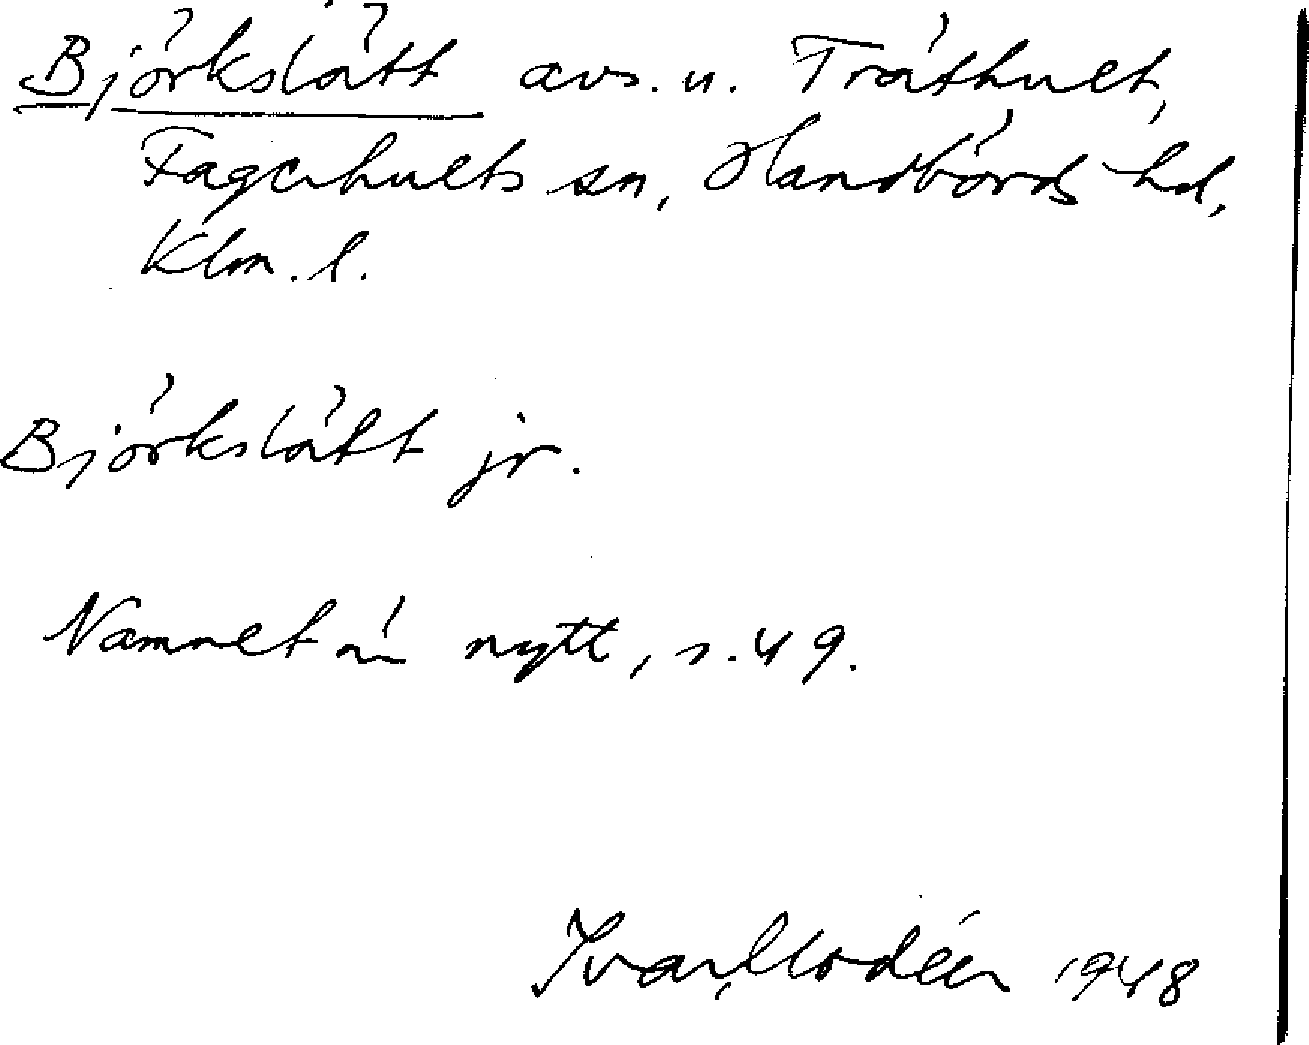 Björkslätt avs. u. Träthult,
Fagerhults sn, Handbörds hd,
Klm. l.
Björkslätt jr.
Namnet är nytt, s. 49.
Ivar Modéer 1948